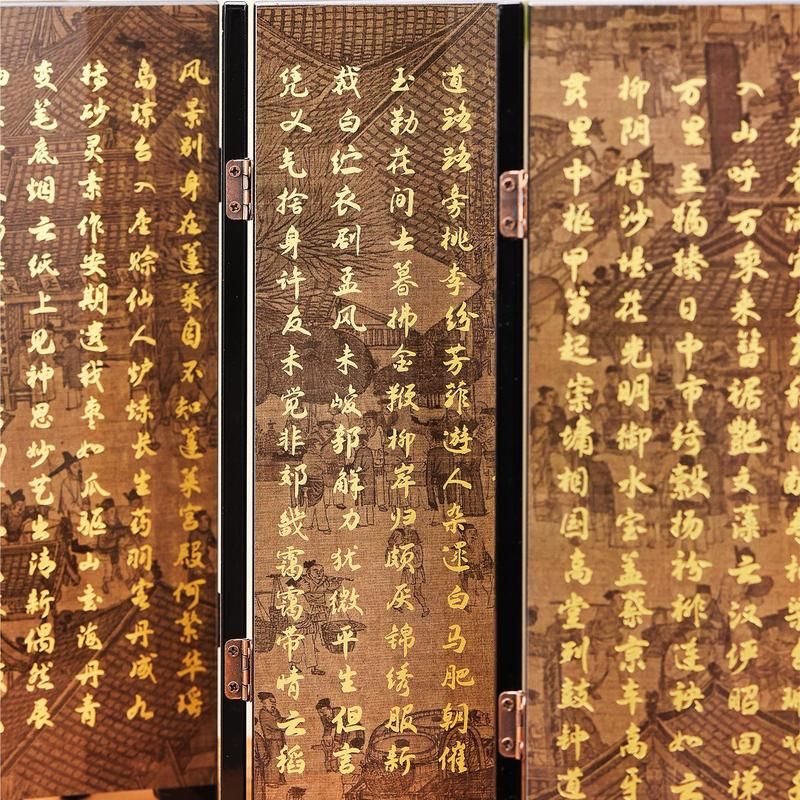 入山呼万乘来簪裾艳文藻云汉伊昭回梯
万里至辐辏日中市绮縠扬连袂如云
柳阴暗沙堤花光明御水宝盖蔡京车高牙
贯里中枢甲第起崇墉相国高堂列鼓钟道
道路路旁桃李纷芳菲游人杂遝白马肥朝催
玉勒花间去暮拂金鞭柳岸归颇厌锦绣服新
裁白纻衣剧孟风未峻郭解力犹微平生但言
凭义气捨身许友未觉非郊畿霭霭带晴云稻
风景别身在蓬莱自不知蓬莱宫殿何繁华瑶
岛琼台入座赊仙人炉炼长生药羽客丹成九
转砂灵素作安期遗我枣如瓜驱山走海丹青
变笔底烟云纸上见神思妙艺生清新偶然展